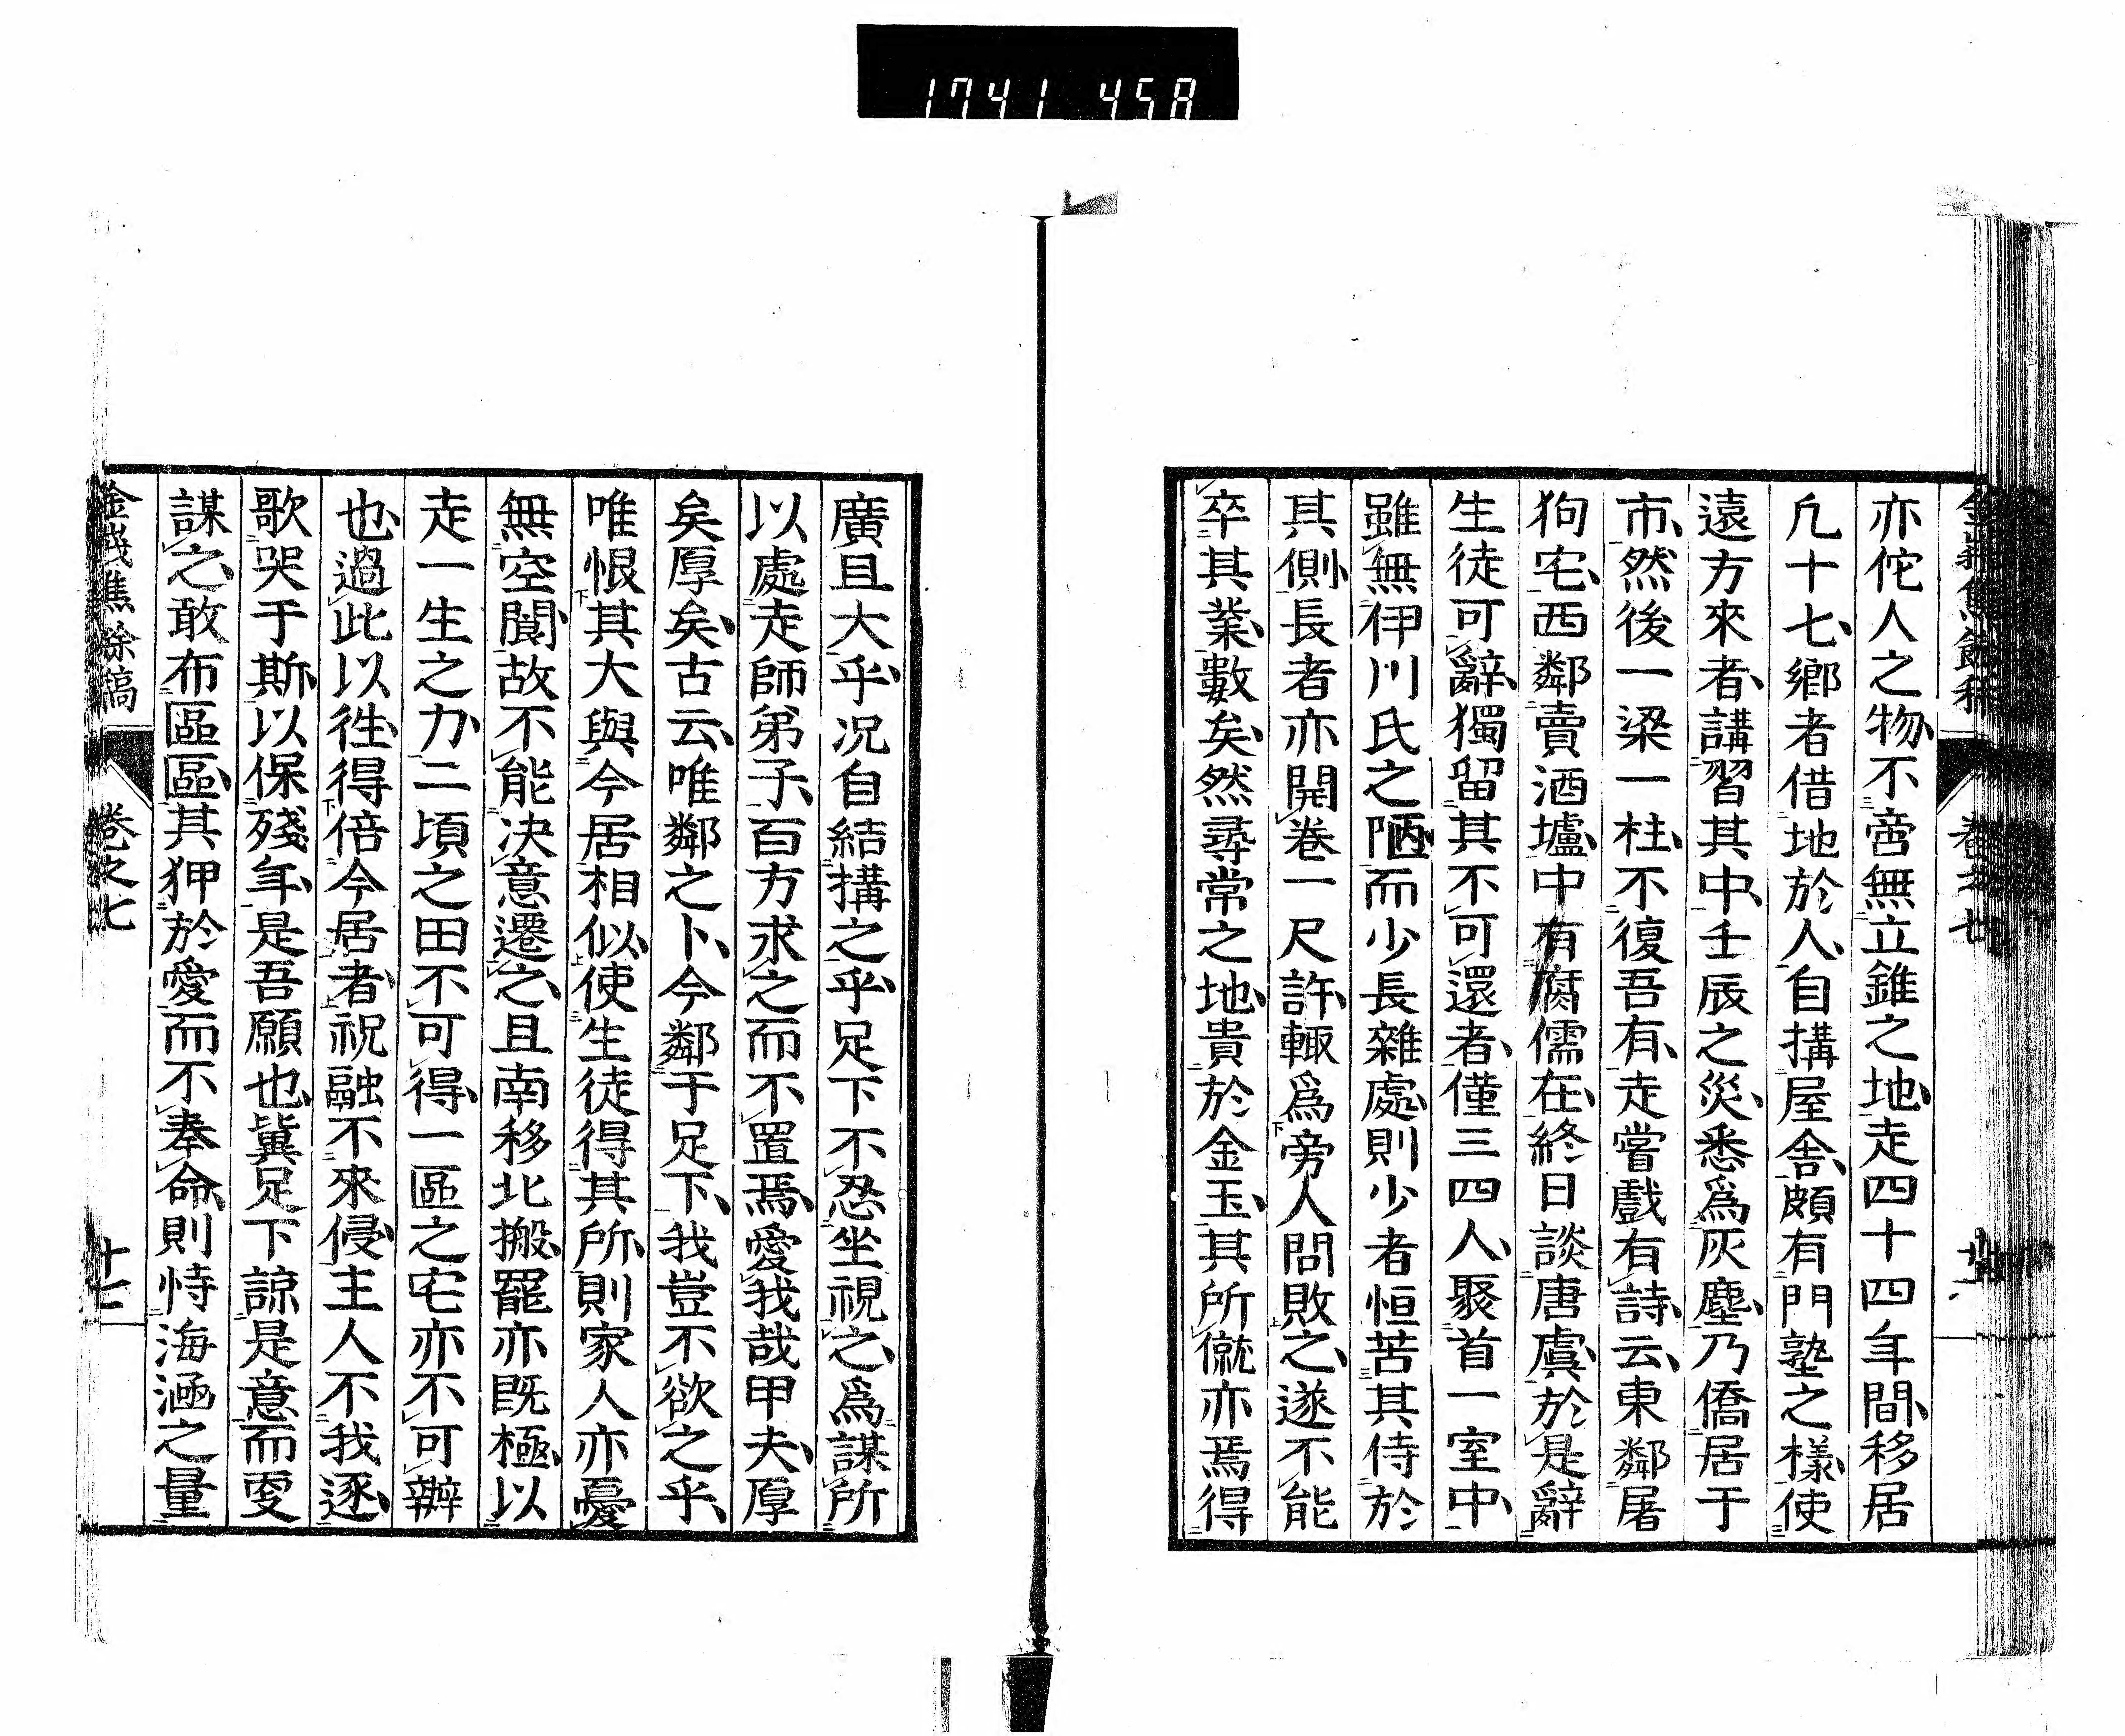 1741 458
亦佗人之物不啻無立錐之地走四十四年間移居
凢十七鄉者借地於人自搆屋舎頗有門塾之樣使
遠方來者講習其中壬辰之災悉爲灰塵乃僑居于
市然後一梁一柱不復吾有走嘗戲有詩云東鄰屠
狗宅西鄰賣酒壚中有腐儒在終日談唐虞於是辭
生徒可辭獨留其不可還者僅三四人聚首一室中
雖無伊川氏之陋而少長雜處則少者恒苦其侍於
其側長者亦開卷一尺許輙爲旁人問敗之遂不能
卒其業數矣然尋常之地貴於金玉其所僦亦焉得
廣且大乎况自結搆之乎足下不忍坐視之爲謀所
以處走師弟子百方求之而不置焉愛我哉甲夫厚
矣厚矣古云唯鄰之卜今鄰于足下我豈不欲之乎
唯恨其大與今居相似使生徒得其所則家人亦憂
無空閴故不能决意遷之且南移北搬罷亦既極以
走一生之力二頃之田不可得一區之宅亦不可辦
也過此以徃得倍今居者祝融不來侵主人不我逐
歌哭于斯以保殘年是吾願也冀足下諒是意而更
謀之敢布區區其狎於愛而不奉命則恃海涵之量
金峩焦餘稿 卷之七 十七